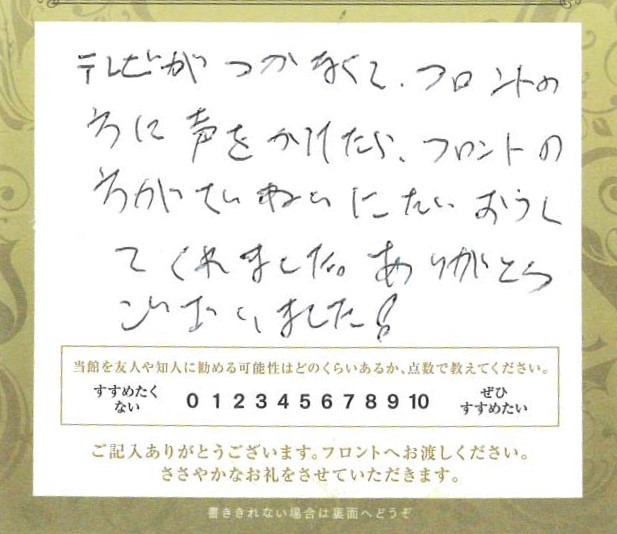 テレビがつかなくて、フロントの
方に声をかけたら、フロントの
方がていねいにたいおうし
てくれました。ありがとう
ございました!
当館を友人や知人に勧める可能性はどのくらいあるか、点数で教えてください。
すすめたく
ない
0 1 2 3 4 5 6 7 8 9 10
ぜひ
すすめたい
ご記入ありがとうございます。フロントへお渡しください。
ささやかなお礼をさせていただきます。
書ききれない場合は裏面へどうぞ